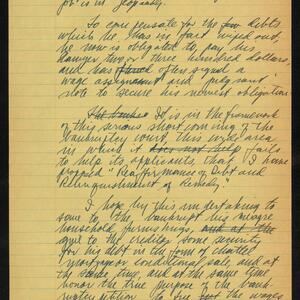 job is in jeopardy.
To compensate for the few debts
which he has in fact wiped out,
he now is obligated to pay his
lawyer two or three hundred dollars,
and has often signed a
wage assignment and judgment
note to secure his newest obligation
It is in the framework
of this serious shortcoming of the
bankruptcy court, this vital area
in which it does not help fails
to help its applicants, that I have
proposed "Reaffirmance of Debt and
Relinquishment of Remedy"
I hope by this undertaking to
save to the bankrupt his meagre
household furnishings, and at the
give to the creditor some security
for his debt in the form of chattel
mortgage or conditional sale, and at
the same time, and at the same time
honor the true purpose of the bank-
ruptcy petition to the wages